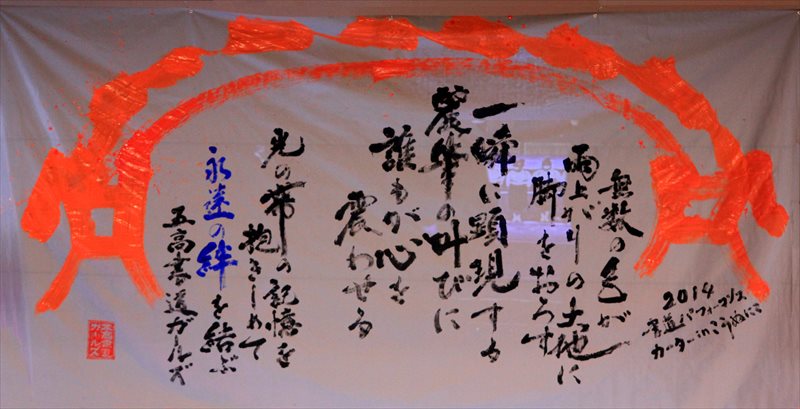 無数の色が
雨上がりの大地に
脚をおろす
一瞬に顕現する
麗華の叫びに
誰もが心を
震わせる
光の帯の記憶を
抱きしめて
永遠の絆を結ぶ
五高書道ガールズ
2014
書道パフォーマンス